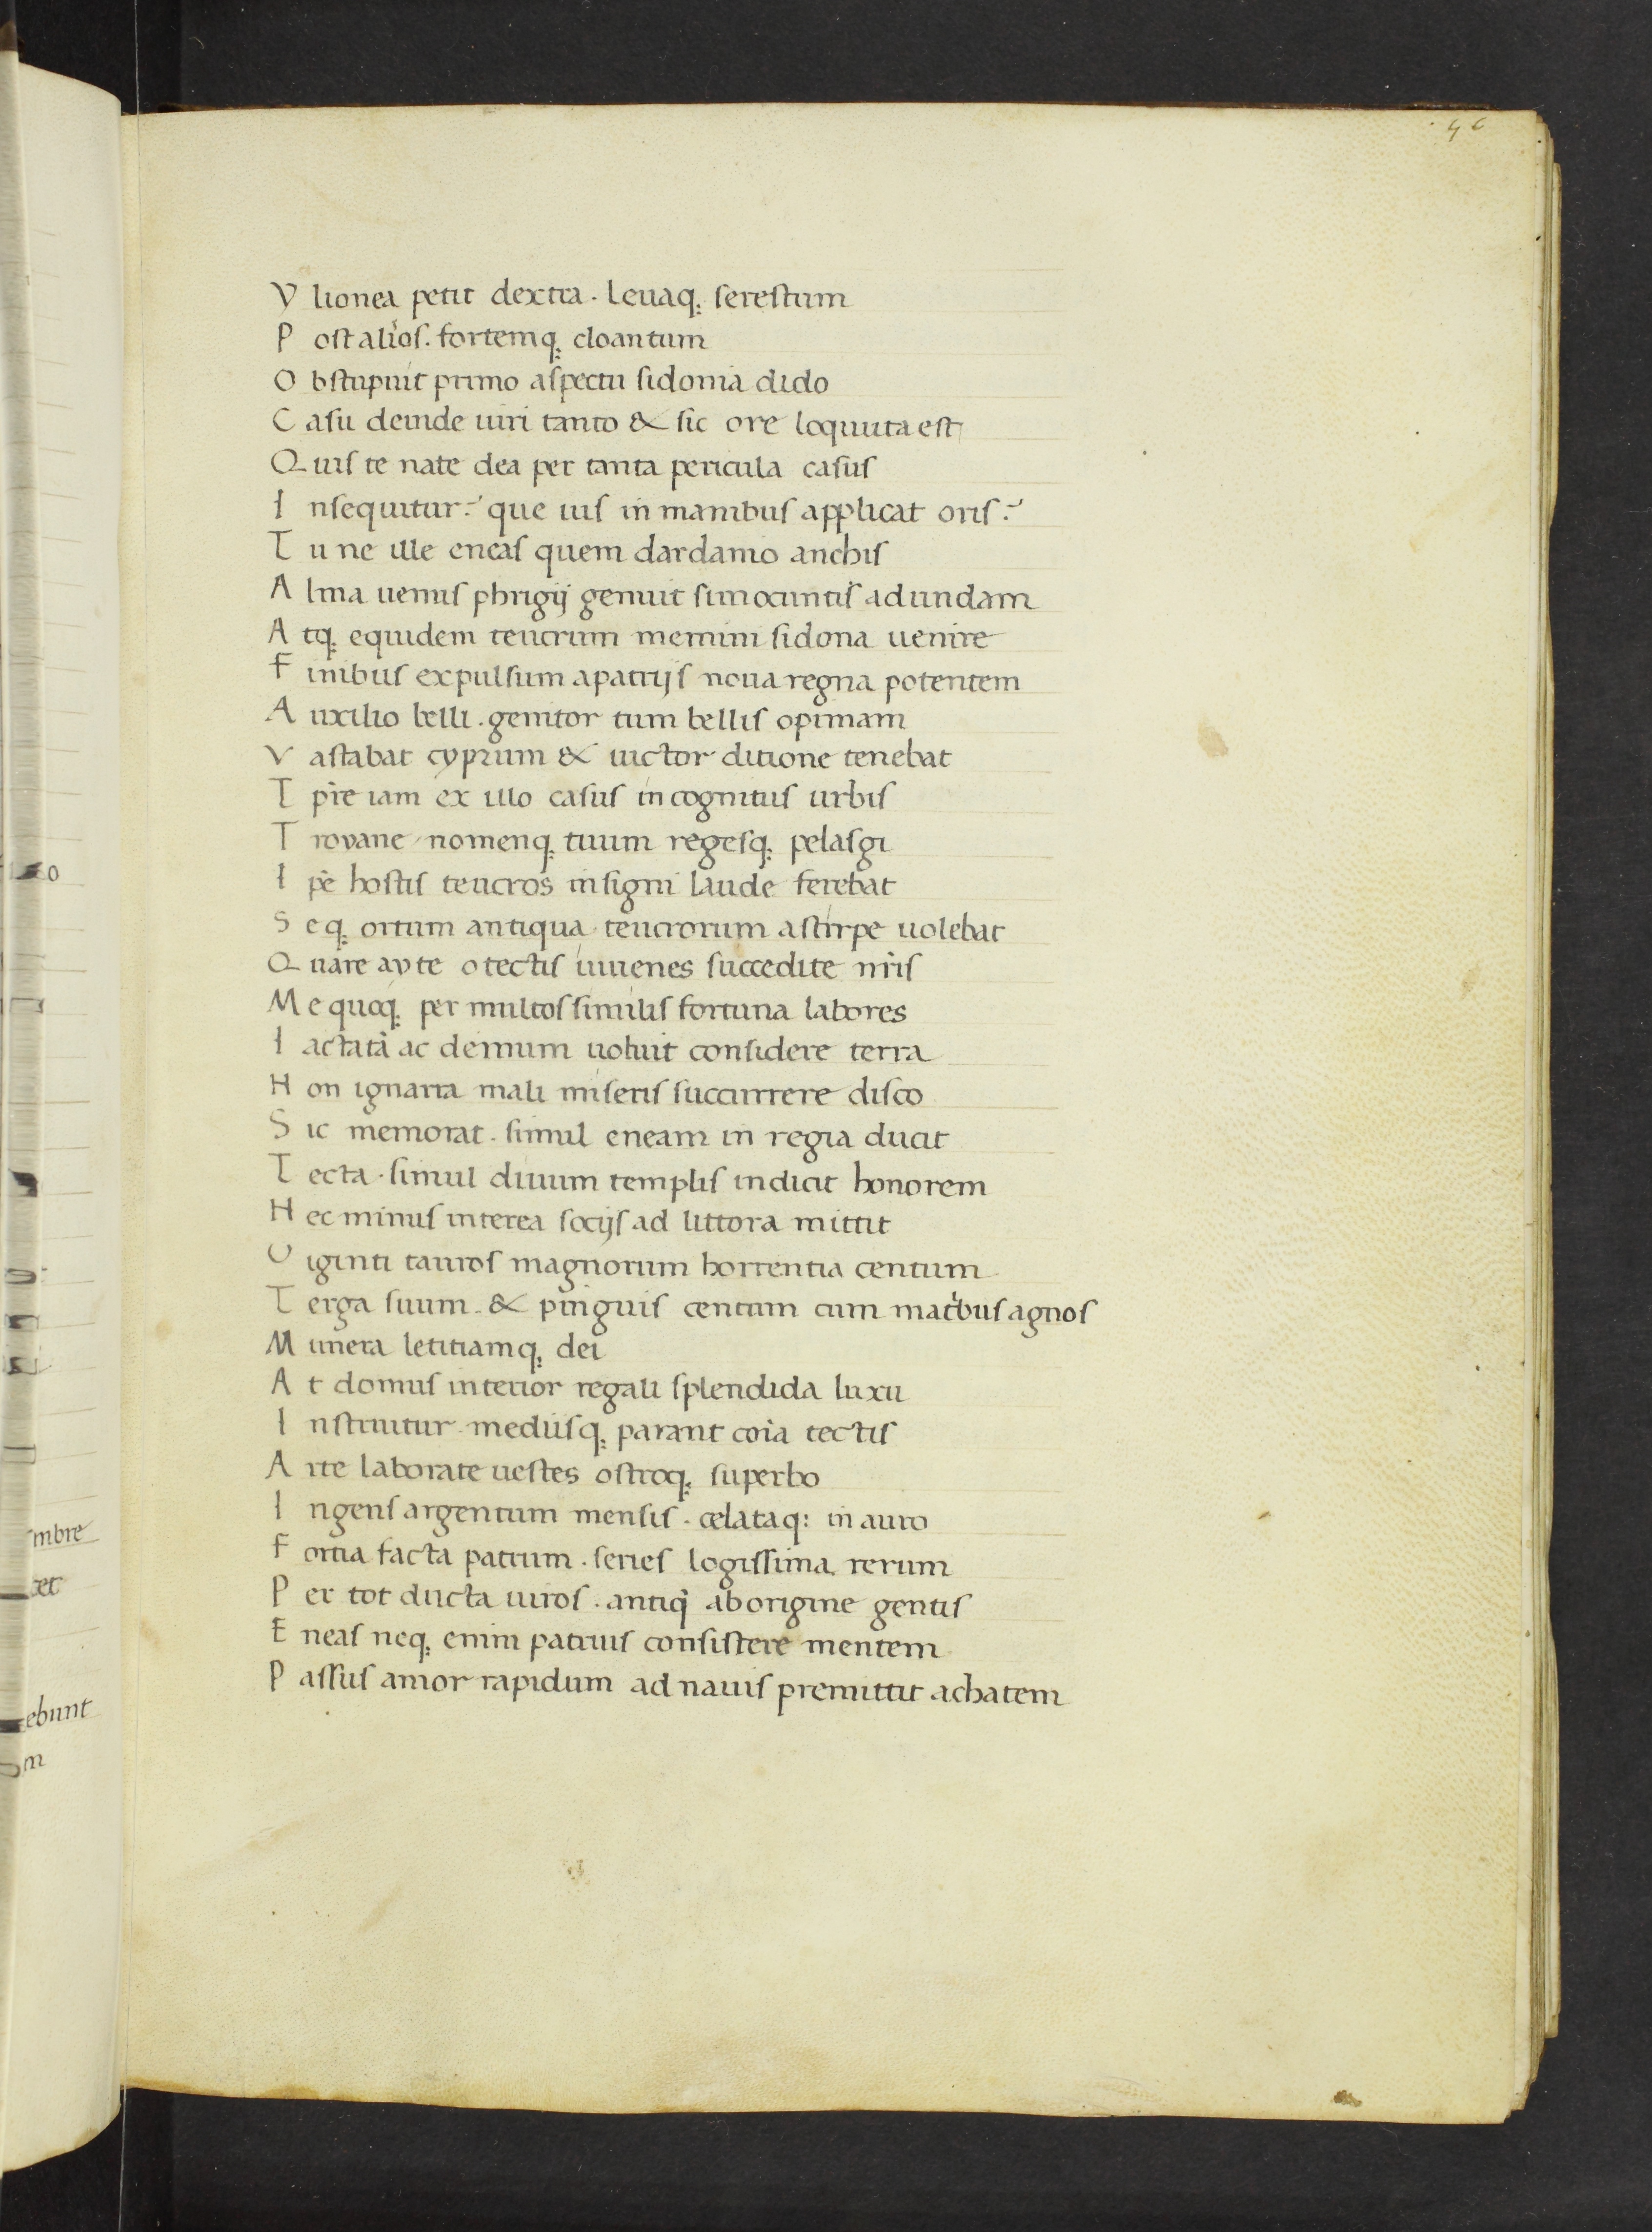 46
V lionea petit dextra . leuaq; serestum
P ost alios . fortemq; cloantum
O bstupuit primo aspectu sidonia dido
C asu deinde uiri tanto & sic ore loquuta est
Q uis te nate dea per tanta pericula casus
I nsequitur? que uis inmanibus applicat oris?
T u ne ille eneas quem dardanio anchis
A lma uenus phrigij genuit simoeuntis ad undam
A tq; equidem teucrum memini sidona uenire
F inibus expulsum apatrijs noua regna potentem
A uxilio belli . genitor tum bellis opimam
V astabat cyprum & uictor ditione tenebat
T pre iam ex illo casus incognitus urbis
T royane nomenq; tuum regesq; pelasgi
I pe hostis teucros insigni laude ferebat
S eq; ortum antiqua teucrorum astirpe uolebat
Q uare ayte o tectis iuuenes succedite nris
M e quoq; per multos similis fortuna labores
I actata ac demum uoluit considere terra
N on ignara mali miseris succurrere disco
S ic memorat . simul eneam in regia ducit
T ecta . simul diuum templis indicit honorem
N ec minus interea socijs ad littora mittit
V iginti tauros magnorum horrentia centum
T erga suum . & pinguis centum cum matribus agnos
M unera letitiamq; dei
A t domus interior regali splendida luxu
I nstruitur mediisq; parant coia tectis
A rte laborate uestes ostroq; superbo
I ngens argentum mensis . celataq; in auro
F ortia facta patrum . series logissima rerum
P er tot ducta uiros . antiq aborigine gentis
E neas neq; enim patrius consistere mentem
P assus amor rapidum ad nauis premittit achatem
o
mbre
et
ebunt
m